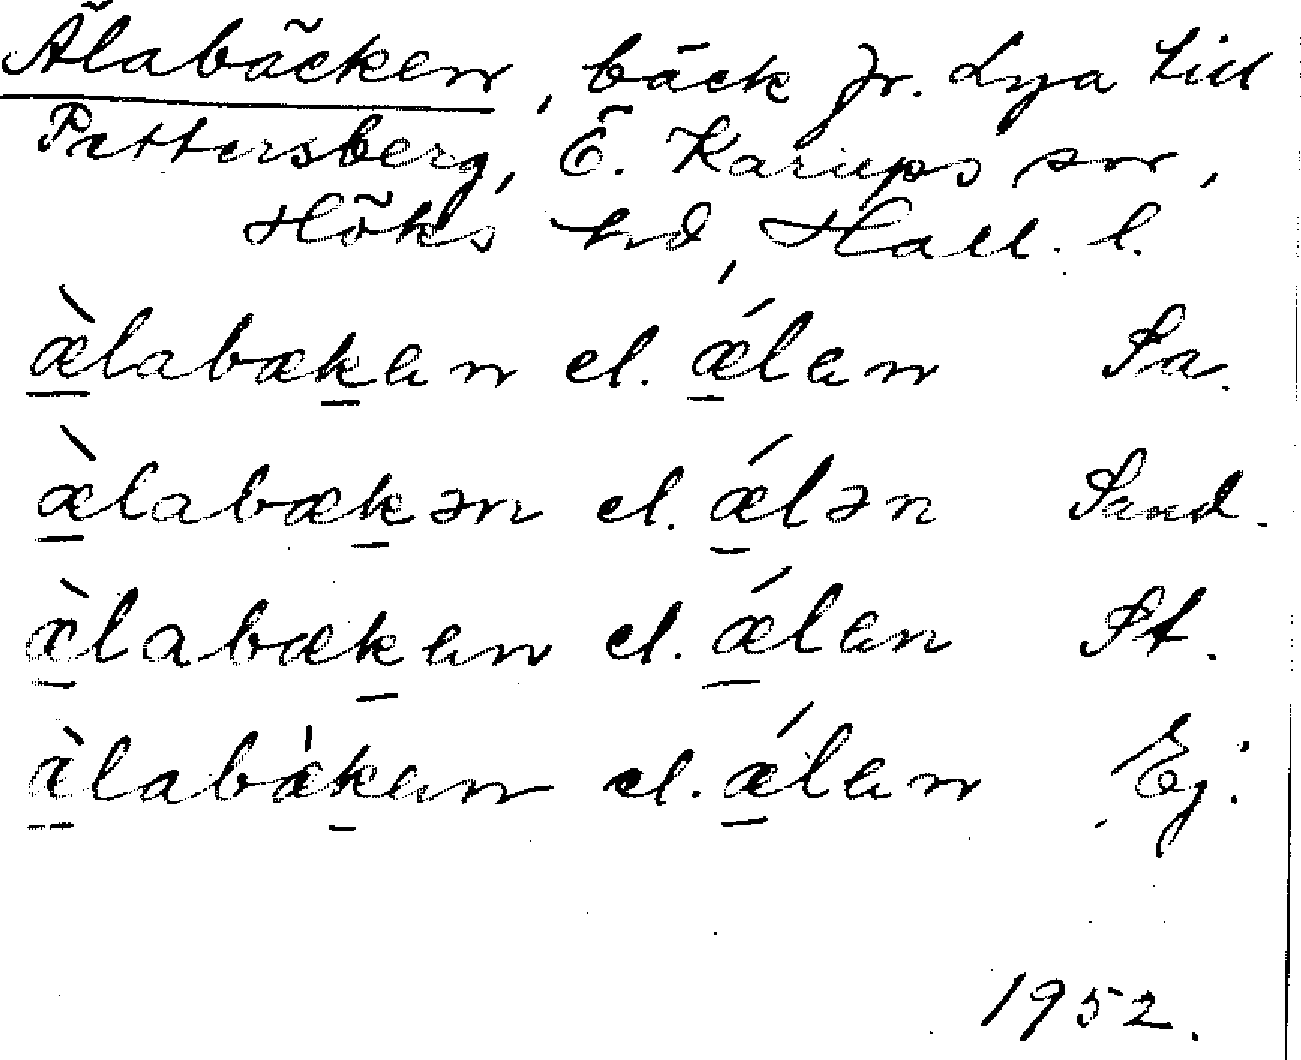 Älabäcken, bäck fr. Lya till
Pettersberg, Ö. Karups sn,
Höks hd, Hall. l.
æ̀labækan el. ǽlan Sa.
æ̀labækən el. ǽlən Sand.
æ̀labækan el. ǽlan St.
æ̀labæ̀kan el. ǽlan Ej.
1952.